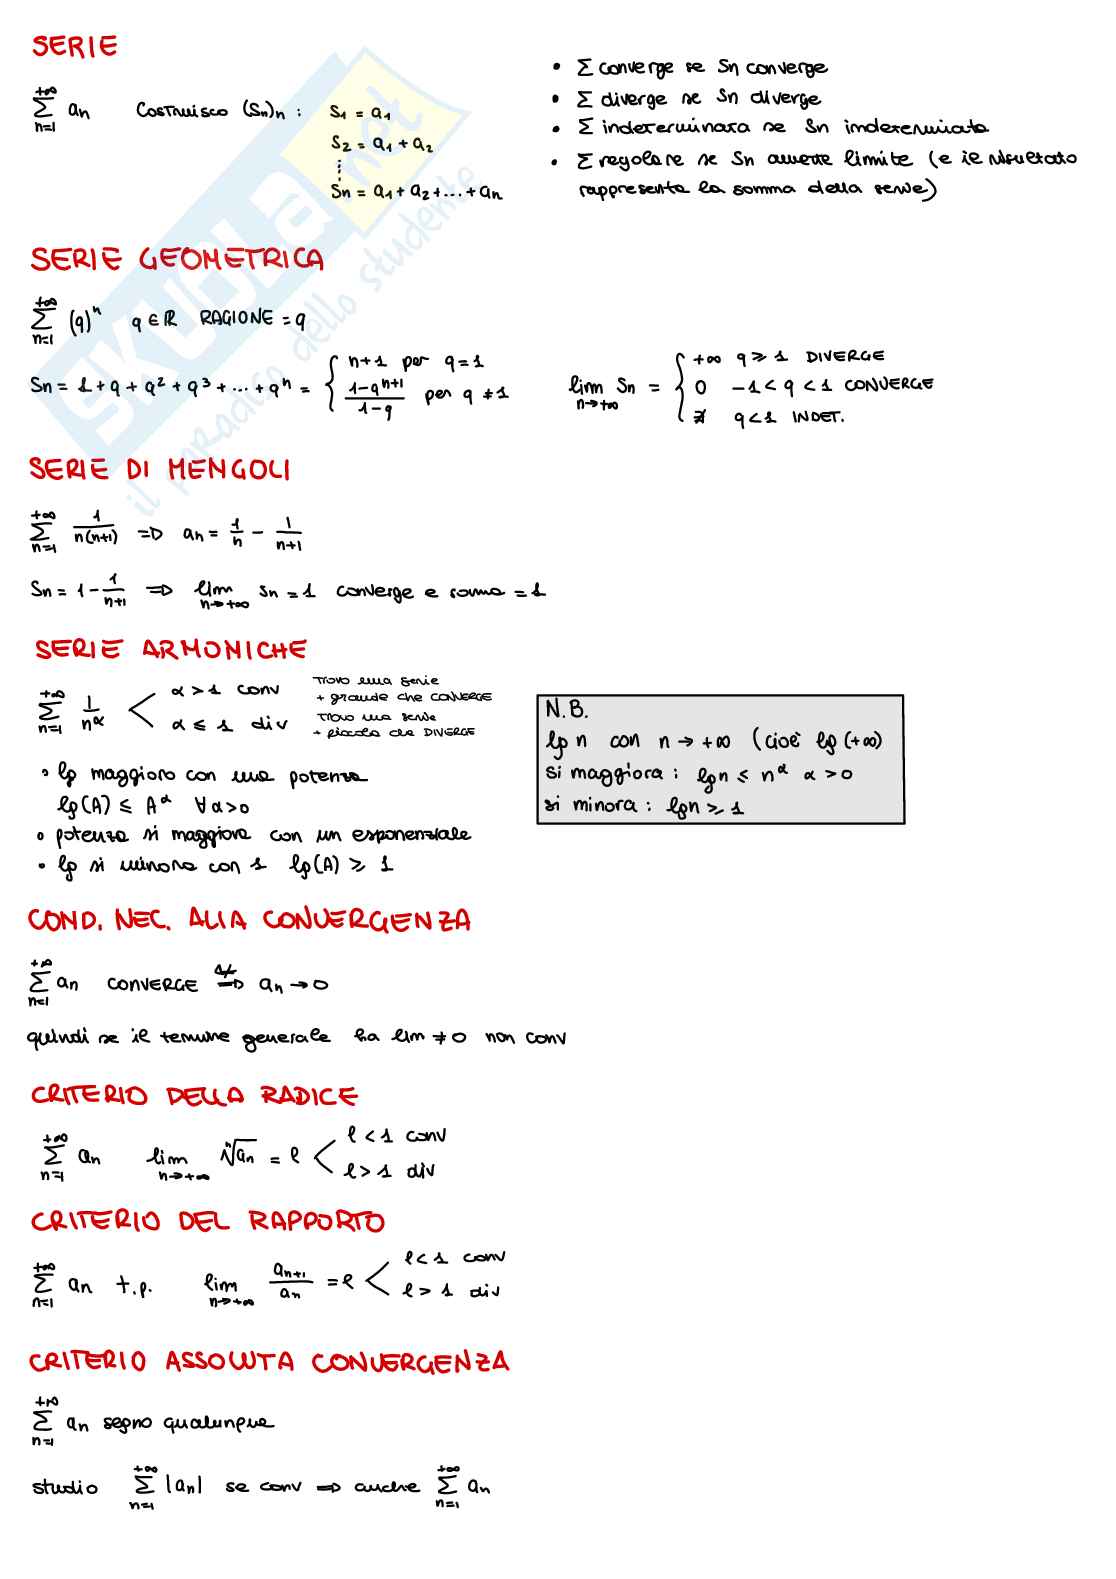 SERIE
+∞ ∑ n=1 an Costruisco (Sn)n : S1 = a1
S2 = a1 + a2
⋮
Sn = a1 + a2 + ... + an
• Σ converge se Sn converge
• Σ diverge se Sn diverge
• Σ indeterminata se Sn indeterminata
• Σ regolare se Sn ammette limite (e il risultato
rappresenta la somma della serie)
SKUOLA.net
il paradiso dello studente
SERIE GEOMETRICA
+∞ ∑ n=1 (q)^n q ∈ ℝ RAGIONE = q
Sn = 1 + q + q² + q³ + ... + q^n = { n+1 per q = 1
(1-q^(n+1))/(1-q) per q ≠ 1
lim n→+∞ Sn = { +∞ q ≥ 1 DIVERGE
0 -1 < q < 1 CONVERGE
∄ q < 1 INDET.
SERIE DI MENGOLI
+∞ ∑ n=1 1/(n(n+1)) => an = 1/n - 1/(n+1)
Sn = 1 - 1/(n+1) => lim n→+∞ Sn = 1 converge e somma = 1
SERIE ARMONICHE
+∞ ∑ n=1 1/n^α < α > 1 conv Trovo una serie
+ grande che CONVERGE
α ≤ 1 div Trovo una serie
+ piccola che DIVERGE
• lg maggioro con una potenza
lg(A) ≤ A^α ∀α>0
• potenza si maggiora con un esponenziale
• lg si minora con 1 lg(A) ≥ 1
N.B.
lg n con n → +∞ (cioè lg(+∞)
si maggiora : lgn ≤ n^α α > 0
si minora : lgn ≥ 1
COND. NEC. ALLA CONVERGENZA
+∞ ∑ n=1 an CONVERGE ⇍ => an → 0
quindi se il termine generale ha lim ≠ 0 non conv
CRITERIO DELLA RADICE
+∞ ∑ n=1 an lim n→+∞ ⁿ√an = l < l < 1 conv
l > 1 div
CRITERIO DEL RAPPORTO
+∞ ∑ n=1 an t.p. lim n→+∞ an+1/an = l < l < 1 conv
l > 1 div
CRITERIO ASSOLUTA CONVERGENZA
+∞ ∑ n=1 an segno qualunque
studio +∞ ∑ n=1 |an| se conv => anche +∞ ∑ n=1 an